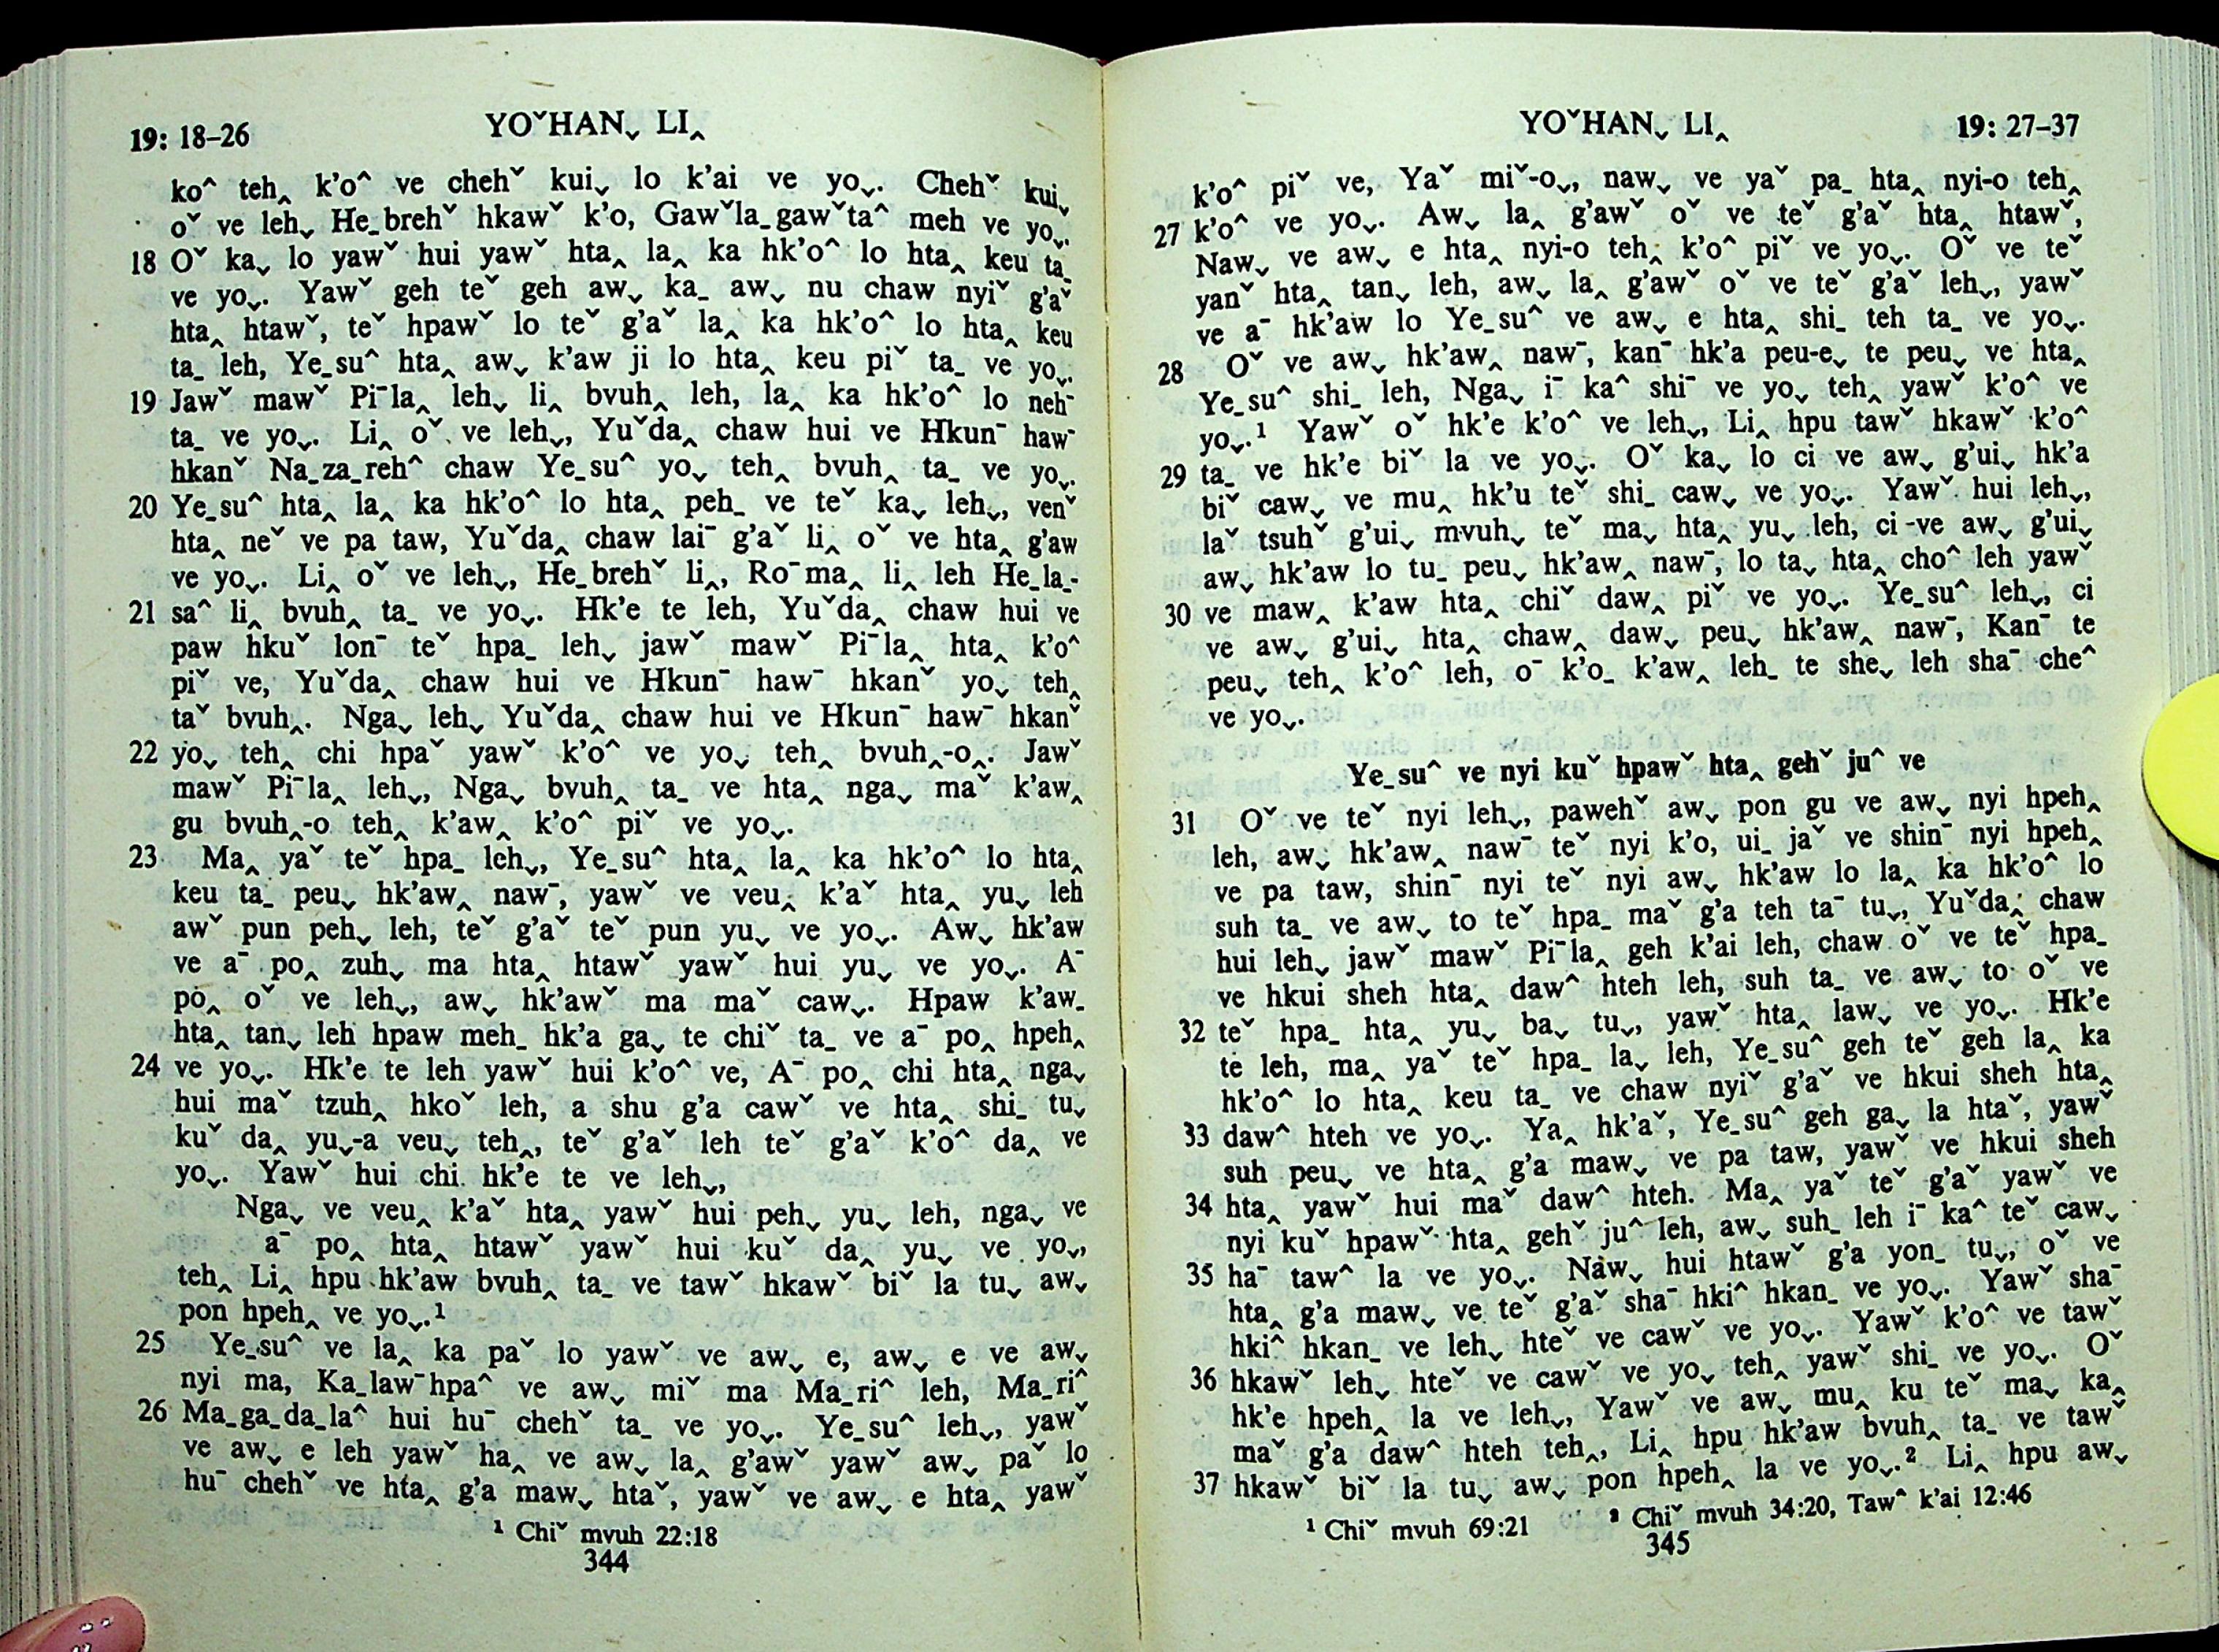 19: 18–26
YOˇHANˬ LI‸
ko^ teh‸ k'o^ ve chehˇ kuiˬ lo k'ai ve yoˬ. Chehˇ kuiˬ
oˇ ve lehˬ He_brehˇ hkawˇ k'o, Gawˇla_gawˇta^ meh ve yoˬ.
18 Oˇ kaˬ lo yawˇ hui yawˇ hta‸ la‸ ka hk'o^ lo hta‸ keu ta_
ve yoˬ. Yawˇ geh teˇ geh awˬ ka_ awˬ nu chaw nyiˇ g'aˇ
hta‸ htawˇ, teˇ hpawˇ lo teˇ g'aˇ la‸ ka hk'o^ lo hta‸ keu
ta_ leh, Ye_su^ hta‸ awˬ k'aw ji lo hta‸ keu piˇ ta_ ve yoˬ.
19 Jawˇ mawˇ Piˉla‸ lehˬ li‸ bvuh‸ leh, la‸ ka hk'o^ lo nehˉ
ta_ ve yoˬ. Li‸ oˇ ve lehˬ, Yuˇda‸ chaw hui ve Hkunˉ hawˉ
hkanˇ Na_za_reh^ chaw Ye_su^ yoˬ teh‸ bvuh‸ ta_ ve yoˬ.
20 Ye_su^ hta‸ la‸ ka hk'o^ lo hta‸ peh_ ve teˇ kaˬ lehˬ, venˇ
hta‸ neˇ ve pa taw, Yuˇda‸ chaw laiˉ g'aˇ li‸ oˇ ve hta‸ g'aw
ve yoˬ. Li‸ oˇ ve lehˬ, He_brehˇ li‸, Roˉma‸ li‸ leh He_la_-
21 sa^ li‸ bvuh‸ ta_ ve yoˬ. Hk'e te leh, Yuˇda‸ chaw hui ve
paw hkuˇ lonˉ teˇ hpa_ lehˬ jawˇ mawˇ Piˉla‸ hta‸ k'o^
piˇ ve, Yuˇda‸ chaw hui ve Hkunˉ hawˉ hkanˇ yoˬ teh‸
taˇ bvuh‸. Ngaˬ lehˬ Yuˇda‸ chaw hui ve Hkunˉ hawˉ hkanˇ
22 yoˬ teh‸ chi hpaˇ yawˇ k'o^ ve yoˬ teh‸ bvuh‸-o‸. Jawˇ
mawˇ Piˉla‸ lehˬ, Ngaˬ bvuh‸ ta_ ve hta‸ ngaˬ maˇ k'aw‸
gu bvuh‸-o teh‸ k'aw‸ k'o^ piˇ ve yoˬ.
23 Ma‸ yaˇ teˇ hpa_ lehˬ, Ye_su^ hta‸ la‸ ka hk'o^ lo hta‸
keu ta_ peuˬ hk'aw‸ nawˉ, yawˇ ve veu‸ k'aˇ hta‸ yuˬ leh
awˇ pun pehˬ leh, teˇ g'aˇ teˇ pun yuˬ ve yoˬ. Awˬ hk'aw
ve aˉ po‸ zuhˬ ma hta‸ htawˇ yawˇ hui yuˬ ve yoˬ. Aˉ
po‸ oˇ ve lehˬ, awˬ hk'awˇ ma maˇ cawˬ. Hpaw k'aw_
hta‸ tanˬ leh hpaw meh_ hk'a gaˬ te chiˇ ta_ ve aˉ po‸ hpeh‸
24 ve yoˬ. Hk'e te leh yawˇ hui k'o^ ve, Aˉ po‸ chi hta‸ ngaˬ
hui maˇ tzuh‸ hkoˇ leh, a shu g'a cawˇ ve hta‸ shi_ tuˬ
kuˇ da‸ yuˬ-a veuˬ teh‸, teˇ g'aˇ leh teˇ g'aˇ k'o^ da‸ ve
yoˬ. Yawˇ hui chi hk'e te ve lehˬ,
Ngaˬ ve veu‸ k'aˇ hta‸ yawˇ hui pehˬ yuˬ leh, ngaˬ ve
aˉ po‸ hta‸ htawˇ yawˇ hui kuˇ da‸ yuˬ ve yoˬ,
teh‸ Li‸ hpu hk'aw bvuh‸ ta_ ve tawˇ hkawˇ biˇ la tuˬ awˬ
pon hpeh‸ ve yoˬ.¹
25 Ye_su^ ve la‸ ka paˇ lo yawˇ ve awˬ e, awˬ e ve awˬ
nyi ma, Ka_lawˉhpa^ ve awˬ miˇ ma Ma_ri^ leh, Ma_ri^
26 Ma_ga_da_la^ hui huˉ chehˇ ta_ ve yoˬ. Ye_su^ lehˬ, yawˇ
ve awˬ e leh yawˇ ha‸ ve awˬ la‸ g'awˇ yawˇ awˬ paˇ lo
huˉ chehˇ ve hta‸ g'a mawˬ htaˇ, yawˇ ve awˬ e hta‸ yawˇ
¹ Chiˇ mvuh 22:18
344
YOˇHANˬ LI‸
19: 27–37
k'o^ piˇ ve, Yaˇ miˇ-oˬ, nawˬ ve yaˇ pa_ hta‸ nyi-o teh‸
27 k'o^ ve yoˬ. Awˬ la‸ g'awˇ oˇ ve teˇ g'aˇ hta‸ htawˇ,
Nawˬ ve awˬ e hta‸ nyi-o teh‸ k'o^ piˇ ve yoˬ. Oˇ ve teˇ
yanˇ hta‸ tanˬ leh, awˬ la‸ g'awˇ oˇ ve teˇ g'aˇ lehˬ, yawˇ
ve aˉ hk'aw lo Ye_su^ ve awˬ e hta‸ shi_ teh ta_ ve yoˬ.
28 Oˇ ve awˬ hk'aw‸ nawˉ, kanˉ hk'a peu-eˬ te peuˬ ve hta‸
Ye_su^ shi_ leh, Ngaˬ iˉ ka^ shiˉ ve yoˬ teh‸ yawˇ k'o^ ve
yoˬ.¹ Yawˇ oˇ hk'e k'o^ ve lehˬ, Li‸ hpu tawˇ hkawˇ k'o^
29 ta_ ve hk'e biˇ la ve yoˬ. Oˇ kaˬ lo ci ve awˬ g'uiˬ hk'a
biˇ cawˬ ve mu‸ hk'u teˇ shi_ cawˬ ve yoˬ. Yawˇ hui lehˬ,
laˇ tsuhˇ g'uiˬ mvuhˬ teˇ maˬ hta‸ yuˬ leh, ci ve awˬ g'uiˬ
awˬ hk'aw lo tu_ peuˬ hk'aw‸ nawˉ, lo taˬ hta‸ cho^ leh yawˇ
30 ve maw‸ k'aw hta‸ chiˇ daw‸ piˇ ve yoˬ. Ye_su^ lehˬ, ci
ve awˬ g'uiˬ hta‸ chaw‸ dawˬ peuˬ hk'aw‸ nawˉ, Kanˉ te
peuˬ teh‸ k'o^ leh, oˉ k'o_ k'aw‸ leh_ te sheˬ leh shaˉ che^
ve yoˬ.
Ye_su^ ve nyi kuˇ hpawˇ hta‸ gehˇ ju^ ve
31 Oˇ ve teˇ nyi lehˬ, pawehˇ awˬ pon gu ve awˬ nyi hpeh‸
leh, awˬ hk'aw‸ nawˉ teˇ nyi k'o, ui_ jaˇ ve shinˉ nyi hpeh‸
ve pa taw, shinˉ nyi teˇ nyi awˬ hk'aw lo la‸ ka hk'o^ lo
suh ta_ ve awˬ to teˇ hpa_ maˇ g'a teh taˉ tuˬ, Yuˇda‸ chaw
hui lehˬ jawˇ mawˇ Piˉla‸ geh k'ai leh, chaw oˇ ve teˇ hpa_
ve hkui sheh hta‸ daw^ hteh leh, suh ta_ ve awˬ to oˇ ve
32 teˇ hpa_ hta‸ yuˬ baˬ tuˬ, yawˇ hta‸ lawˬ ve yoˬ. Hk'e
te leh, ma‸ yaˇ teˇ hpa_ laˬ leh, Ye_su^ geh teˇ geh la‸ ka
hk'o^ lo hta‸ keu ta_ ve chaw nyiˇ g'aˇ ve hkui sheh hta‸
33 daw^ hteh ve yoˬ. Ya‸ hk'aˇ, Ye_su^ geh gaˬ la htaˇ, yawˇ
suh peuˬ ve hta‸ g'a mawˬ ve pa taw, yawˇ ve hkui sheh
34 hta‸ yawˇ hui maˇ daw^ hteh. Ma‸ yaˇ teˇ g'aˇ yawˇ ve
nyi kuˇ hpawˇ hta‸ gehˇ ju^ leh, awˬ suh_ leh iˉ ka^ teˇ cawˬ
35 haˉ taw^ la ve yoˬ. Nawˬ hui htawˇ g'a yon_ tuˬ, oˇ ve
hta‸ g'a mawˬ ve teˇ g'aˇ shaˉ hki^ hkan_ ve yoˬ. Yawˇ shaˉ
hki^ hkan_ ve lehˬ hteˇ ve cawˇ ve yoˬ. Yawˇ k'o^ ve tawˇ
36 hkawˇ lehˬ hteˇ ve cawˇ ve yoˬ teh‸ yawˇ shi_ ve yoˬ. Oˇ
hk'e hpeh‸ la ve lehˬ, Yawˇ ve awˬ mu‸ ku teˇ maˬ ka‸
maˇ g'a daw^ hteh teh‸, Li‸ hpu hk'aw bvuh‸ ta_ ve tawˇ
37 hkawˇ biˇ la tuˬ awˬ pon hpeh‸ la ve yoˬ.² Li‸ hpu awˬ
¹ Chiˇ mvuh 69:21 ² Chiˇ mvuh 34:20, Taw^ k'ai 12:46
345